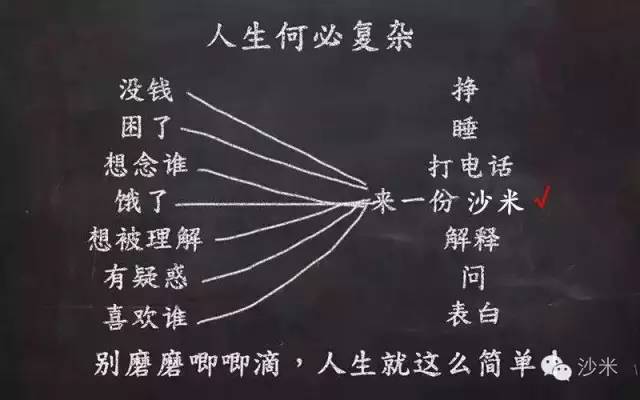 人生何必复杂
没钱 挣
困了 睡
想念谁 打电话
饿了 来一份 沙米
想被理解 解释
有疑惑 问
喜欢谁 表白
别磨磨唧唧滴，人生就这么简单
沙米